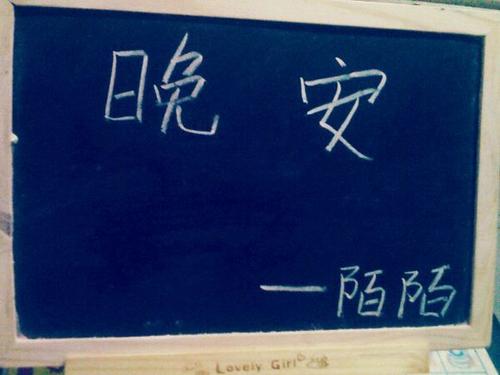 晚安
—陌陌
Lovely Girl